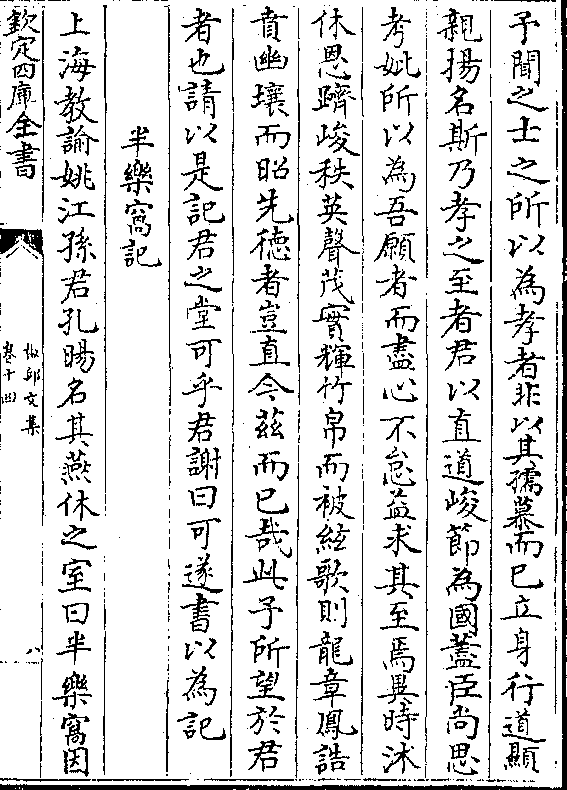 予聞之士之所以為孝者非以其孺慕而已立身行道顯
親揚名斯乃孝之至者君以直道峻節為國藎臣尚思
考妣所以為吾願者而盡心不怠益求其至焉異時沐
休恩躋峻秩英聲茂實輝竹帛而被絃歌則龍章鳳誥
賁幽壤而昭先德者豈直今茲而已哉此予所望於君
者也請以是記君之堂可乎君謝曰可遂書以為記
半樂窩記
上海教諭姚江孫君孔暘名其燕休之室曰半樂窩因
欽定四庫全書
椒邱文集
卷十四
八